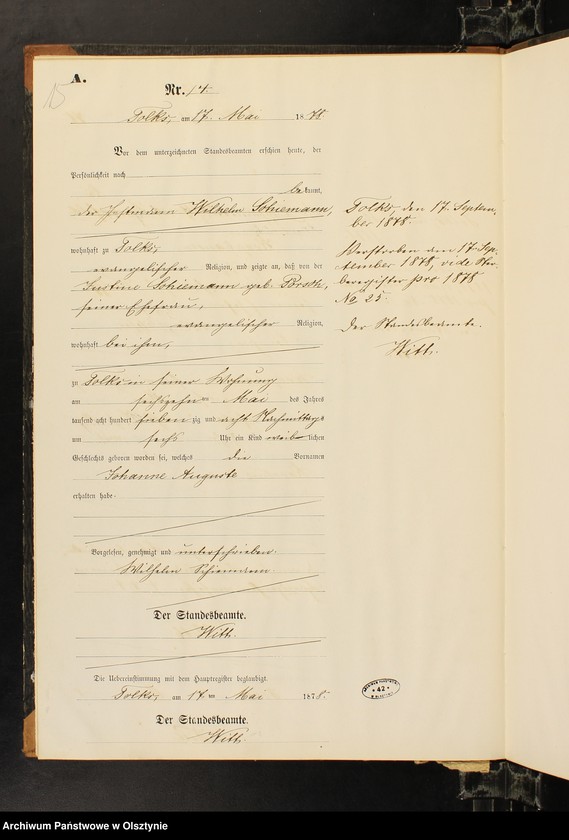 A.
15
Nr. 14.
Tolks, am 17. Mai 1878.
Vor dem unterzeichneten Standesbeamten erschien heute, der
Persönlichkeit nach
bekannt,
der Wilhelm Schiemann,
wohnhaft zu Tolks,
evangelischer Religion, und zeigte an, daß von der
Justine Schiemann geb. Porsch,
seiner Ehefrau,
evangelischer Religion,
wohnhaft bei ihm,
zu Tolks in seiner Wohnung
am sechszehnten Mai des Jahres
tausend acht hundert siebenzig und acht Nachmittags
um sechs Uhr ein Kind weiblichen
Geschlechts geboren worden sei, welches die Vornamen
Johanne Auguste
erhalten habe.
Vorgelesen, genehmigt und unterschrieben.
Wilhelm Schiemann
Der Standesbeamte.
Witt.
Die Uebereinstimmung mit dem Hauptregister beglaubigt.
Tolks, am 17. ten Mai 1878.
Der Standesbeamte.
Witt.
Tolks, den 17. Septem,
ber 1878.
Verstorben am 17. Sep,
tember 1878, vide Ster,
beregister pro 1878
No 25.
Der Standesbeamte.
Witt.
42
Archiwum Państwowe w Olsztynie